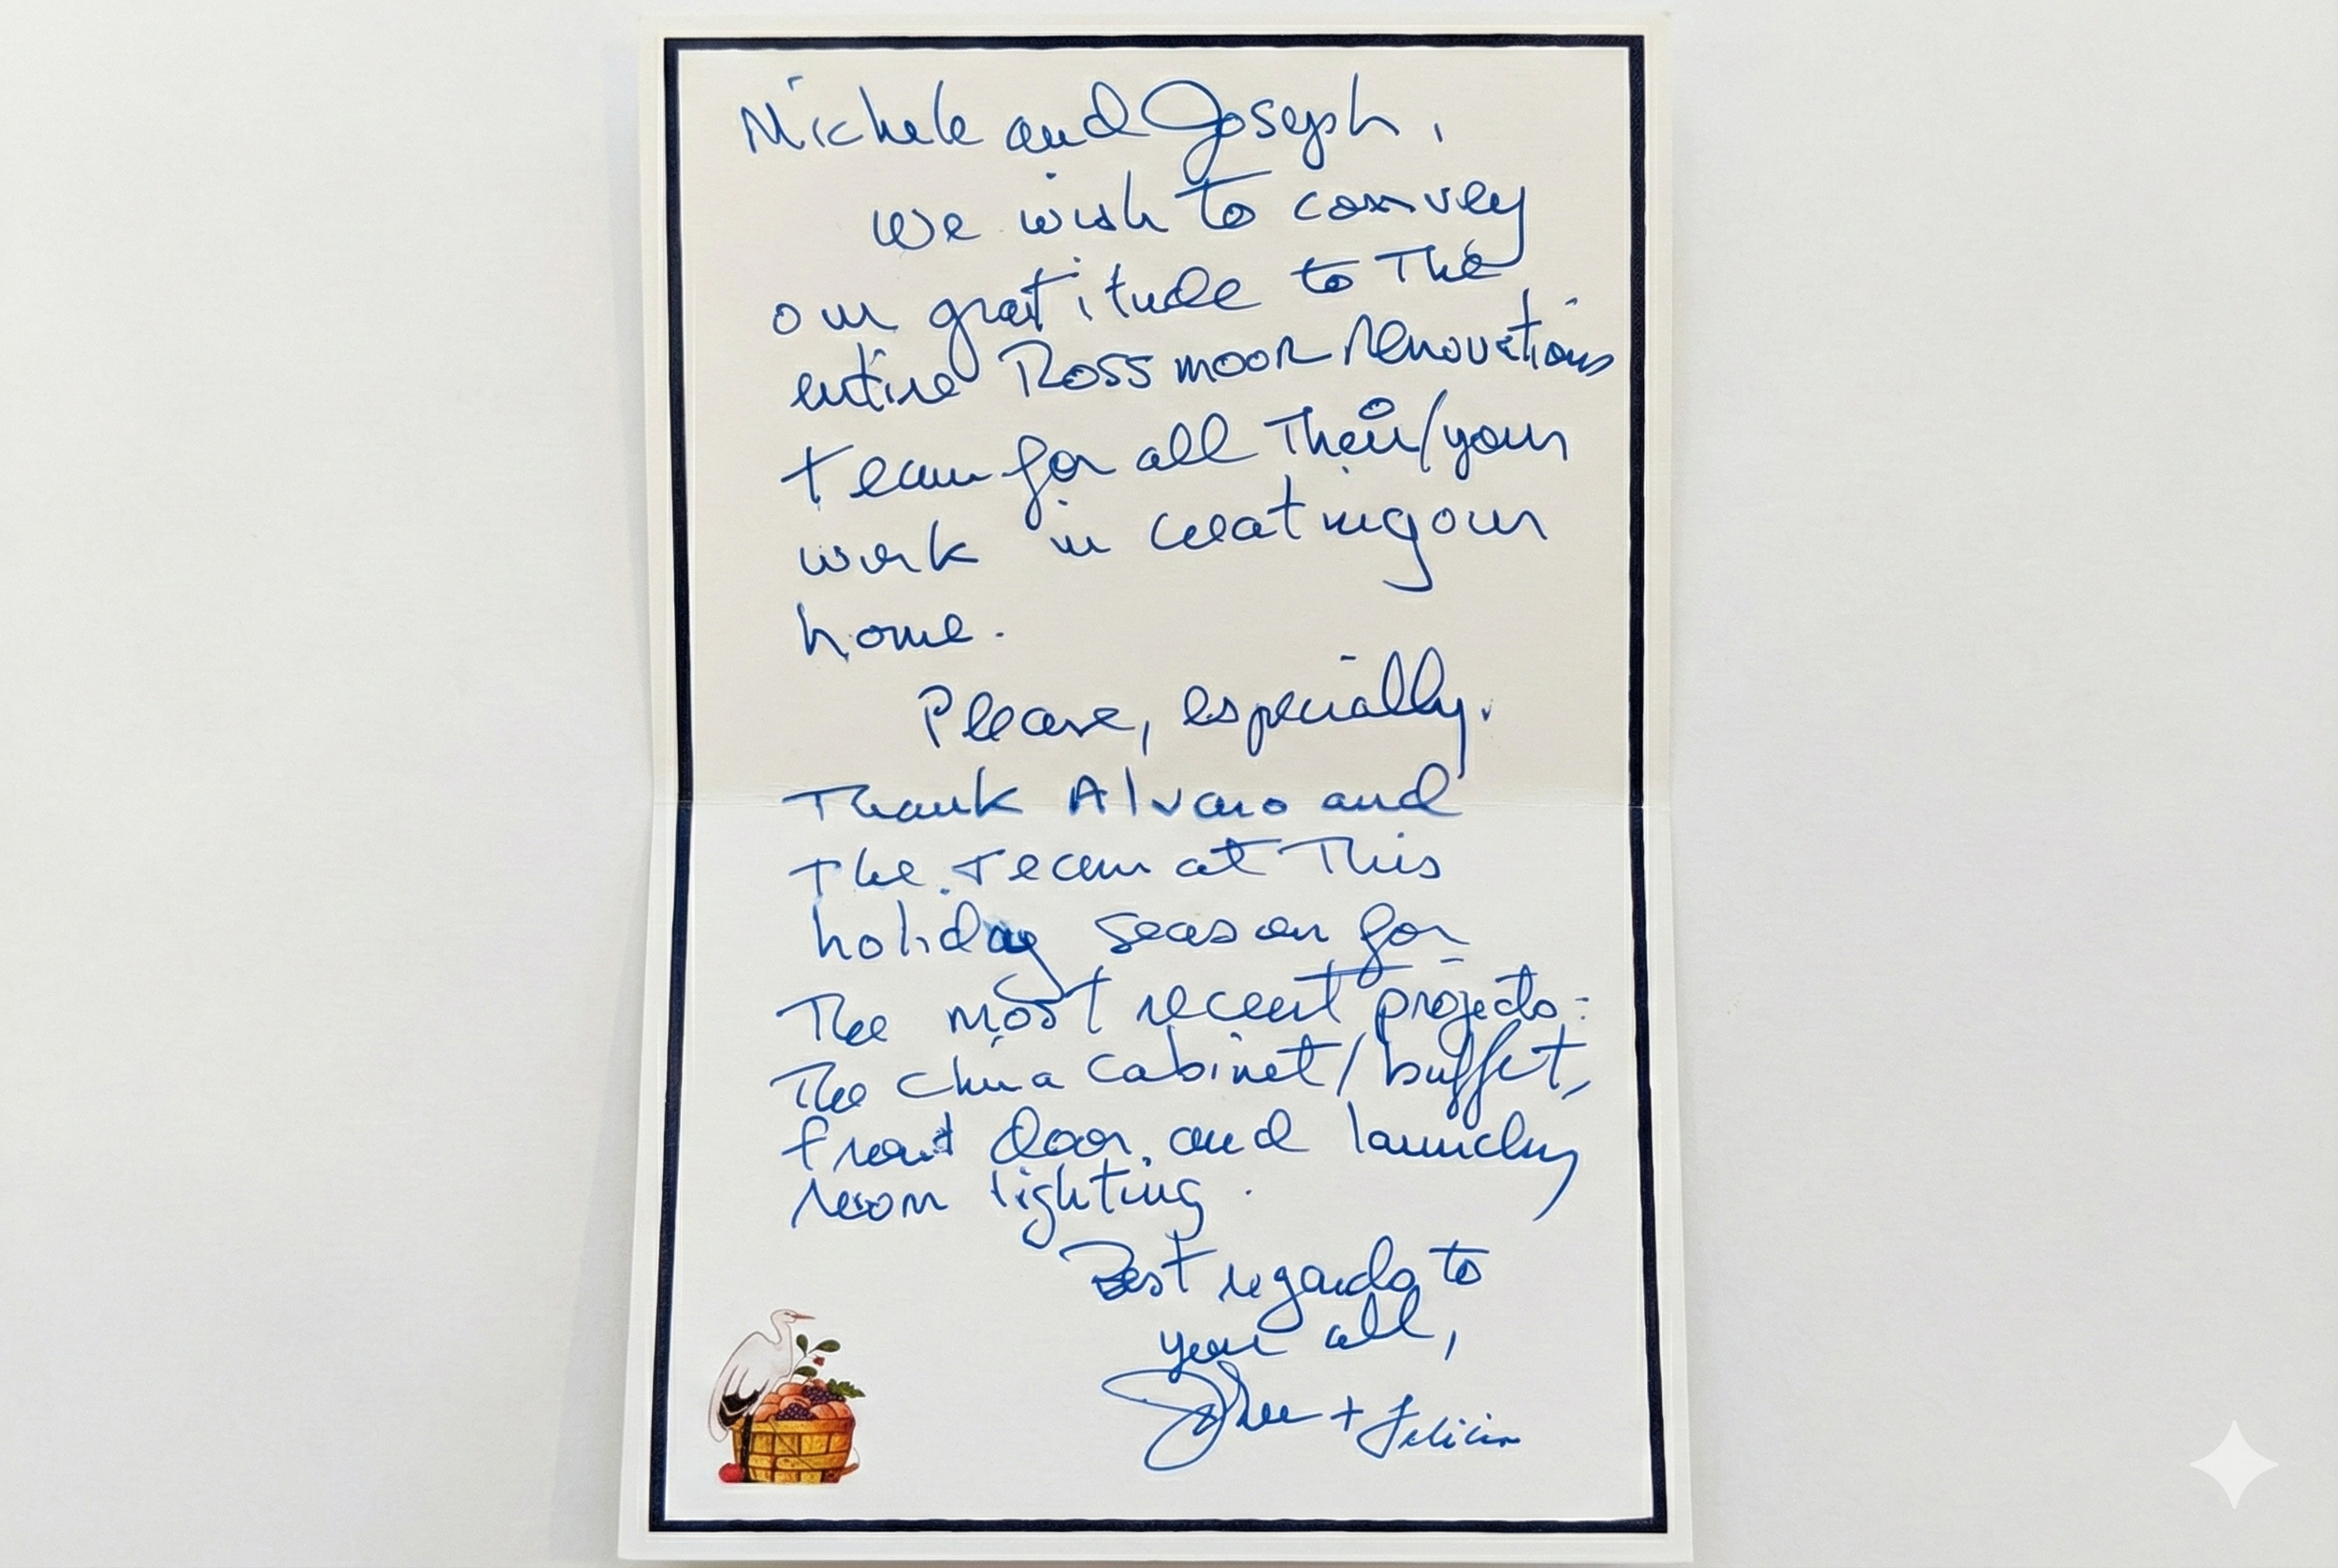 Michele and Joseph,
We wish to convey
our gratitude to The
entire Rossmoor Renovations
team for all Their/your
work in creating our
home.
Please, especially,
Thank Alvaro and
The team at This
holiday season for
The most recent projects:
The china cabinet/buffet,
front door, and laundry
room lighting.
Best regards to
you all,
John + Felicia